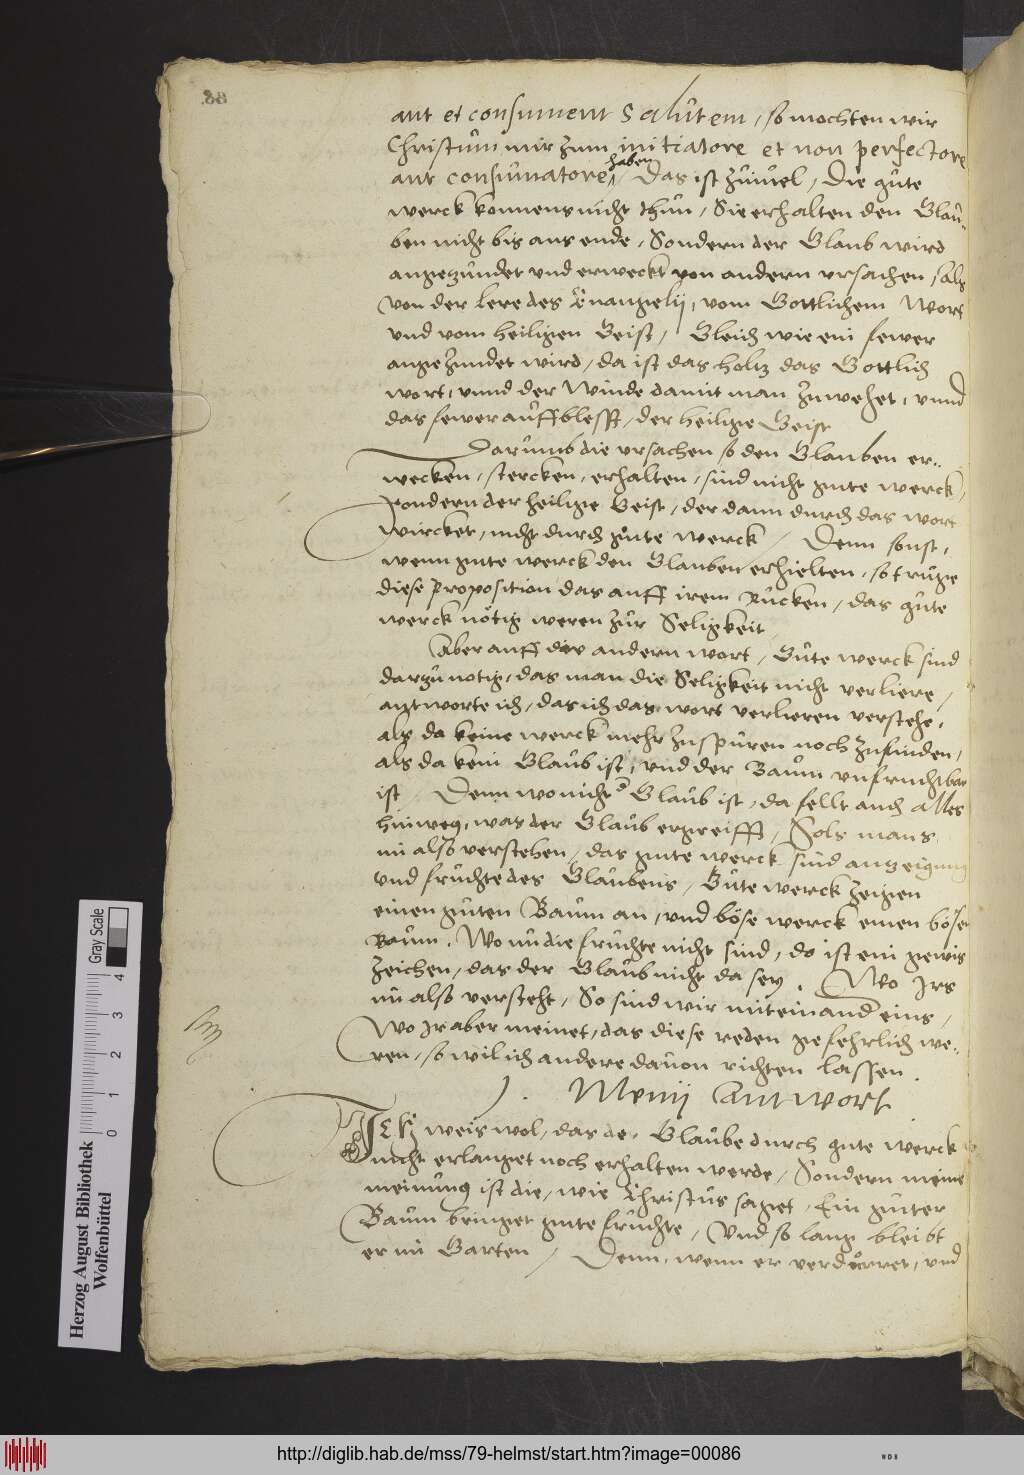 aut et consument Salutem, so mochten wir
Christum nur zum initiatore et non perfectore
haben
aut consumatore, Das ist zuuiel, Die gute
werck konnens nicht thun, Sie erhalten den Glau-
ben nicht bis ans ende, Sondern der Glaub wird
angezundet vnd erweckt von andern vrsachen, als
von der lere des Euangelij, vom Gottlichem Wort
vnd vom heiligen Geist, Gleich wie ein fewer
angezundet wird, da ist das holtz das Gottlich
wort, vnnd der Winde damit man zuwehet, vnnd
das fewer auffblesst, der heilige Geist
Darumb die vrsachen so den Glauben er-
wecken, stercken, erhalten, sind nicht gute werck,
sondern der heilige Geist, der dann durch das wort
wircket, nicht durch gute werck, Denn sonst,
wenn gute werck den Glauben erhielten, so truge
diese proposition das auff irem Rucken, das gute
werck nötig weren zur Seligkeit,
Aber auff die andern wort, Gute werck sind
darzu notig, das man die Seligkeit nicht verliere,
antworte ich, das ich das wort verlieren verstehe,
als da keine werck mehr zuspuren noch zufinden,
als da kein Glaub ist, vnd der Baum vnfruchtbar
ist, Denn wo nicht Glaub ist, da fellt auch alles
hinweg, was der Glaub ergreifft, Sols mans
nu also verstehen, das gute werck sind anzeigung
vnd fruchte des Glaubens, Gute werck zeigen
einen guten Baum an, vnd böse werck einen bösen
Baum. Wo nu die fruchte nicht sind, da ist ein gewis
zeichen, das der Glaub nicht da sey. Wo Irs
nu also versteht, So sind wir miteinand eins,
Wo Ir aber meinet, das diese reden gefehrlich we-
ren, so wil ich andere dauon richten lassen.
J. Menij Antwort
Ich weis wol, das der Glaube durch gute werck
nicht erlanget noch erhalten werde, Sondern meine
meinung ist die, wie Christus saget, Ein guter
Baum bringet gute fruchte, Vnd so lang bleibt
er im Garten, Denn, wenn er verdorret, vnd
Gray Scale
0 1 2 3 4
Herzog August Bibliothek
Wolfenbüttel
http://diglib.hab.de/mss/79-helmst/start.htm?image=00086